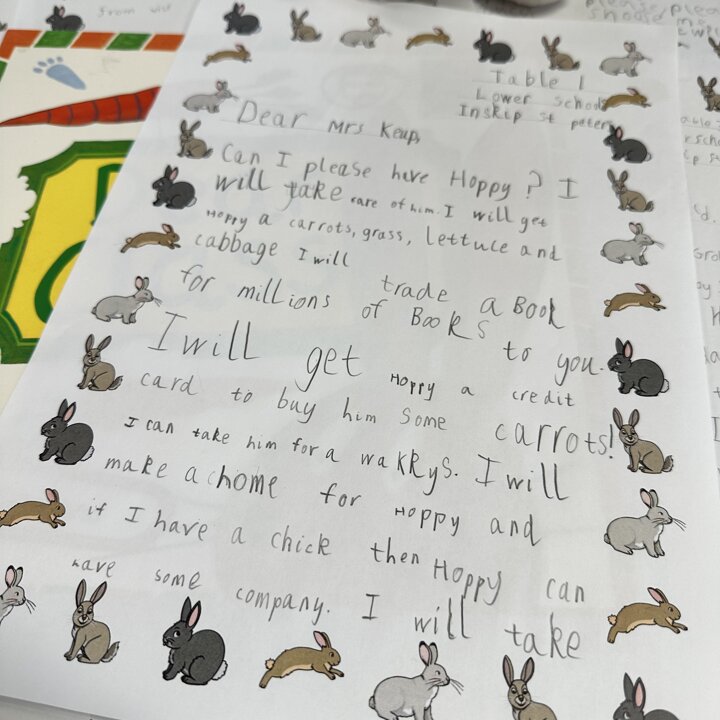 from
please, please
should
Table 1
Lower School
Inskip St peters
Dear Mrs Keup,
Can I please have Hoppy? I
will take care of him. I will get
Hoppy a carrots, grass, lettuce and
cabbage I will
trade a Book
for millions of Books
to you.
I will get Hoppy a credit
card to buy him some carrots!
I can take him for a wakkys. I will
make a home for Hoppy and
if I have a chick then Hoppy can
have some company. I will take